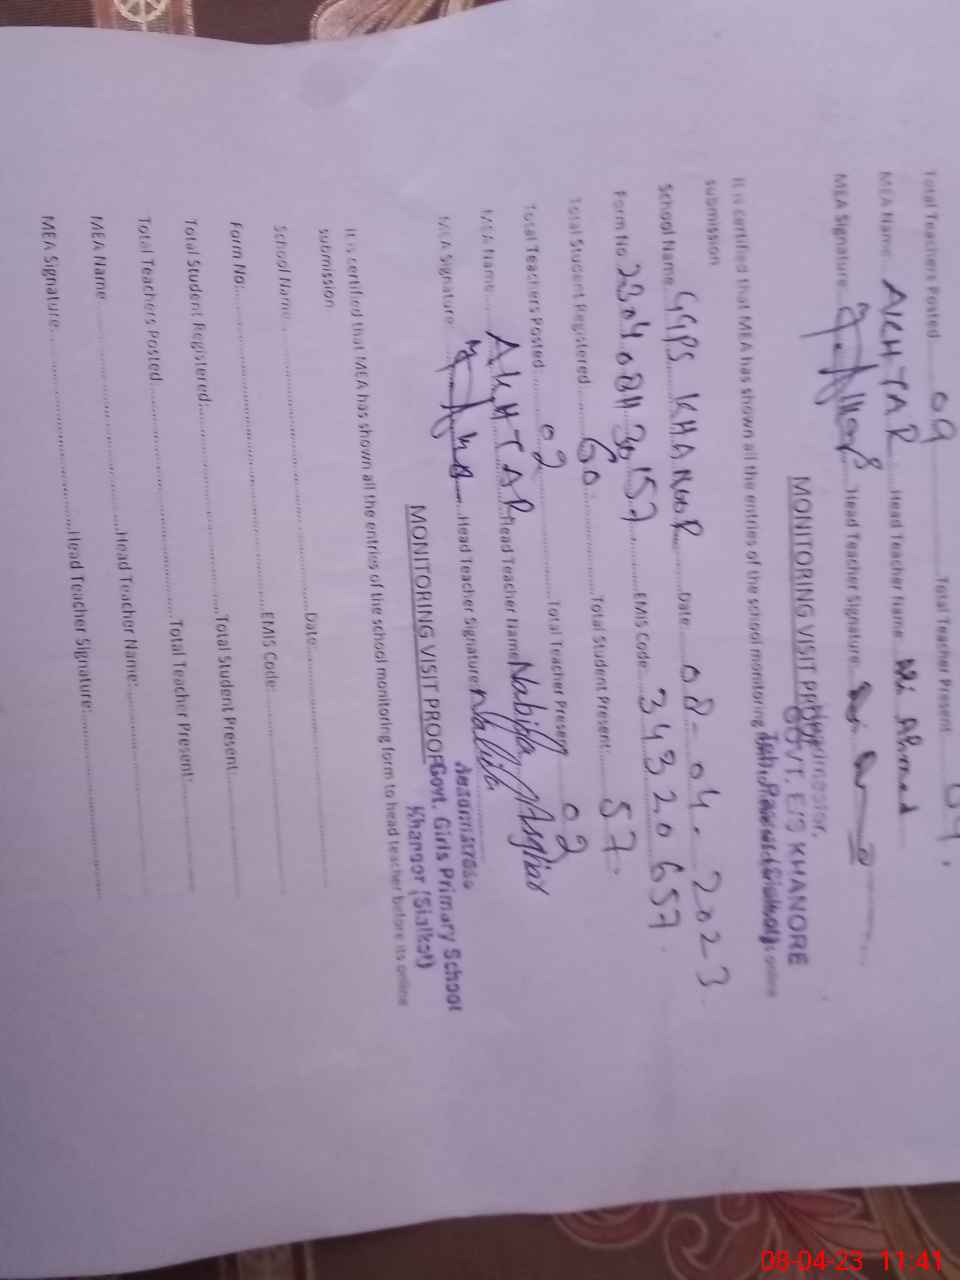 Total Teachers Posted 09 Total Teacher Present 09
MEA Name AKHTAR Head Teacher Name Ahmad
MEA Signature Head Teacher Signature
MONITORING VISIT PROOF
GOVT. E/S KHANORE
It is certified that MEA has shown all the entries of the school monitoring online
submission
School Name GGPS KHANOOR Date 08-04-2023
Form No EMIS Code 34320657
Total Student Registered 60 Total Student Present: 57
Total Teachers Posted 02 Total Teacher Present 02
MEA Name AKHTAR Head Teacher Name Nabila Asghar
MEA Signature Head Teacher Signature Nabila
Headmistress
MONITORING VISIT PROOF Govt. Girls Primary School
Khanoor (Sialkot)
It is certified that MEA has shown all the entries of the school monitoring form to head teacher before its online
submission
School Name Date:
Form No: EMIS Code:
Total Student Registered: Total Student Present:
Total Teachers Posted Total Teacher Present:
MEA Name Head Teacher Name:
MEA Signature Head Teacher Signature:
08-04-23 11:41